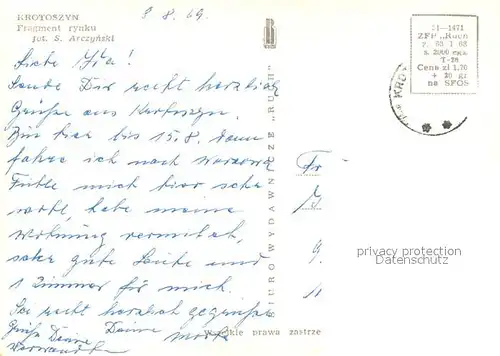 KROTOSZYN
Fragment rynku
fot. S. Arczyński
9 8. 69.
Liebe Ida!
Sende Dir recht herzliche
Grüße aus Krotoszyn.
Bin hier bis 15.8. dann
fahre ich nach
Fühle mich hier sehr
wohl, habe meine
Wohnung vermietet,
sehr gute Leute und
1 Zimmer für mich.
Sei recht herzlich gegrüßt
Grüße Deine Deine
BIURO WYDAWNICZE „RUCH"
Wszelkie prawa zastrze
Fr
ZFP „Ruch
Cena zł 1.70
+ 30 gr
na SFOS
KRO
privacy protection
Datenschutz